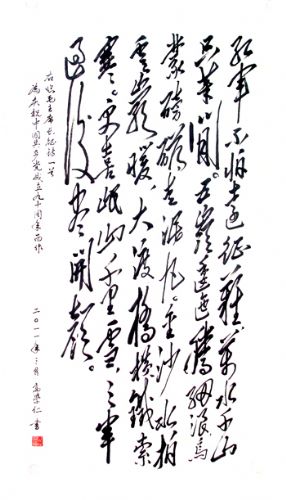 红军不怕远征难。万水千山
只等闲。五嶺逶迤腾细浪乌
蒙磅礴走泥丸。金沙水拍
雲崖暖。大渡橋横鐵索
寒。更喜岷山千里雪。三军
过后尽開颜。
右录毛主席长征诗一首
为庆祝中国共产党成立九十周年而作
二〇一一年 书